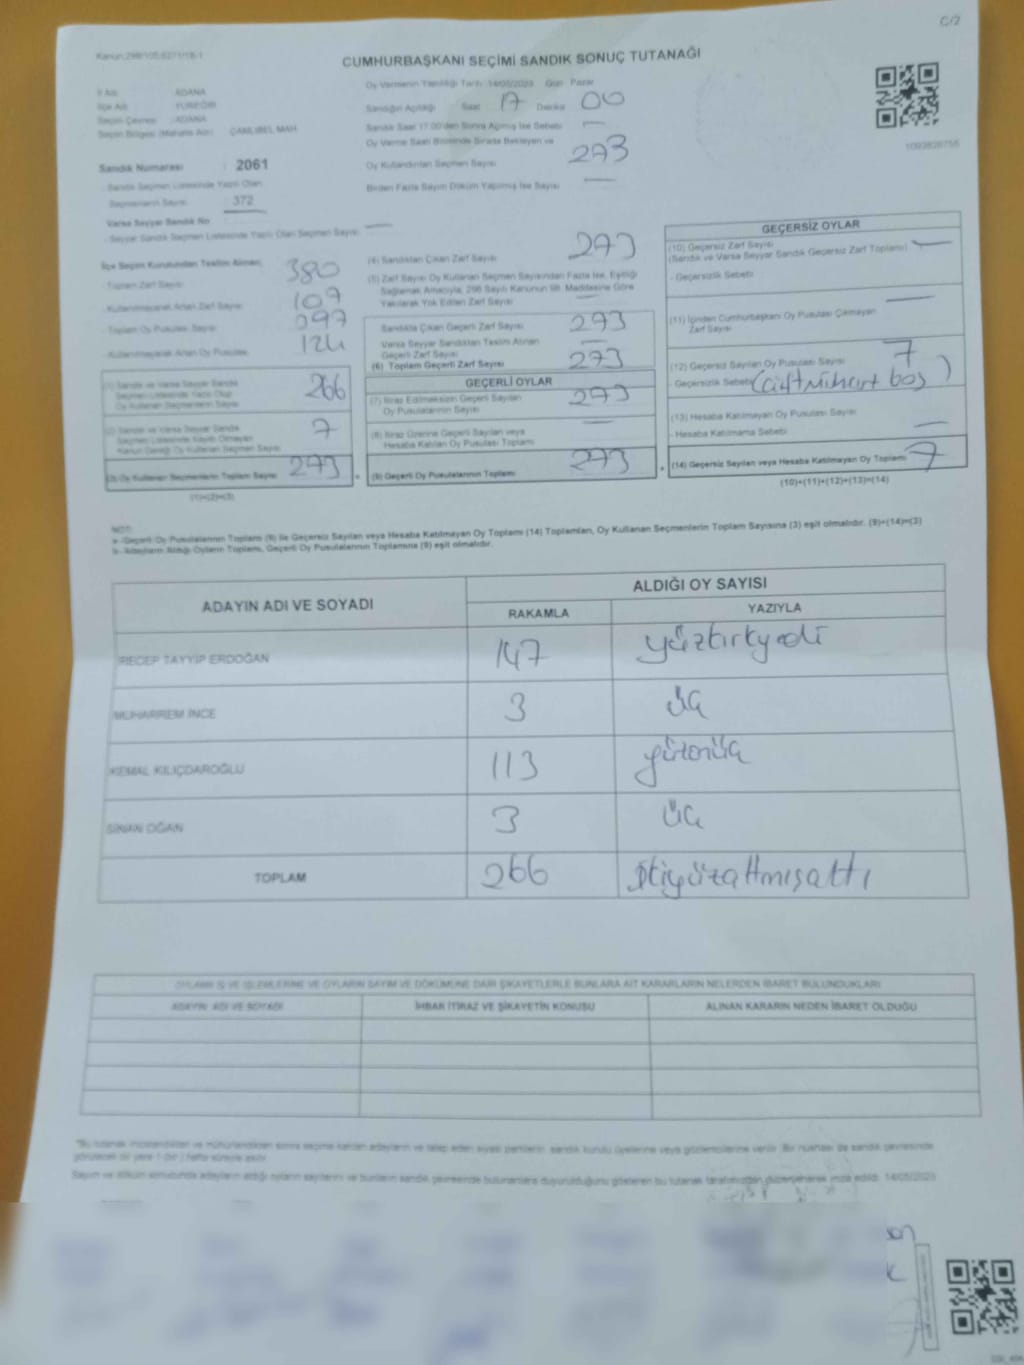 C/2
Kanun:298/105,6271/18-1
CUMHURBAŞKANI SEÇİMİ SANDIK SONUÇ TUTANAĞI
İl Adı : ADANA
İlçe Adı : YÜREĞİR
Seçim Çevresi : ADANA
Seçim Bölgesi (Mahalle Adı) : ÇAMLIBEL MAH
Sandık Numarası : 2061
- Sandık Seçmen Listesinde Yazılı Olan
Seçmenlerin Sayısı : 372
Varsa Seyyar Sandık No
- Seyyar Sandık Seçmen Listesinde Yazılı Olan Seçmen Sayısı
Oy Vermenin Yapıldığı Tarih :14/05/2023 Gün : Pazar
Sandığın Açıldığı Saat 17 Dakika 00
Sandık Saat 17:00'den Sonra Açılmış İse Sebebi
Oy Verme Saati Bitiminde Sırada Bekleyen ve
Oy Kullandırılan Seçmen Sayısı 273
Birden Fazla Sayım Döküm Yapılmış İse Sayısı
İlçe Seçim Kurulundan Teslim Alınan;
- Toplam Zarf Sayısı 380
- Kullanılmayarak Artan Zarf Sayısı 107
- Toplam Oy Pusulası Sayısı 397
- Kullanılmayarak Artan Oy Pusulası 124
(1) Sandık ve Varsa Seyyar Sandık
Seçmen Listesinde Yazılı Olup
Oy Kullanan Seçmenlerin Sayısı 266
(2) Sandık ve Varsa Seyyar Sandık
Seçmen Listesinde Kayıtlı Olmayan
Kanun Gereği Oy Kullanan Seçmen Sayısı 7
(3) Oy Kullanan Seçmenlerin Toplam Sayısı 273
(1)+(2)=(3)
(4) Sandıktan Çıkan Zarf Sayısı 273
(5) Zarf Sayısı Oy Kullanan Seçmen Sayısından Fazla İse, Eşitliği
Sağlamak Amacıyla, 298 Sayılı Kanunun 98. Maddesine Göre
Yakılarak Yok Edilen Zarf Sayısı
Sandıkta Çıkan Geçerli Zarf Sayısı 273
Varsa Seyyar Sandıktan Teslim Alınan
Geçerli Zarf Sayısı
(6) Toplam Geçerli Zarf Sayısı 273
GEÇERLİ OYLAR
(7) İtiraz Edilmeksizin Geçerli Sayılan
Oy Pusulalarının Sayısı 273
(8) İtiraz Üzerine Geçerli Sayılan veya
Hesaba Katılan Oy Pusulası Toplamı
(9) Geçerli Oy Pusulalarının Toplamı 273
1093828755
GEÇERSİZ OYLAR
(10) Geçersiz Zarf Sayısı
(Sandık ve Varsa Seyyar Sandık Geçersiz Zarf Toplamı)
- Geçersizlik Sebebi
(11) İçinden Cumhurbaşkanı Oy Pusulası Çıkmayan
Zarf Sayısı
(12) Geçersiz Sayılan Oy Pusulası Sayısı 7
- Geçersizlik Sebebi (Çift Mühürt boş)
(13) Hesaba Katılmayan Oy Pusulası Sayısı
- Hesaba Katılmama Sebebi
(14) Geçersiz Sayılan veya Hesaba Katılmayan Oy Toplamı 7
(10)+(11)+(12)+(13)=(14)
NOT:
a- Geçerli Oy Pusulalarının Toplamı (9) ile Geçersiz Sayılan veya Hesaba Katılmayan Oy Toplamı (14) Toplamları, Oy Kullanan Seçmenlerin Toplam Sayısına (3) eşit olmalıdır. (9)+(14)=(3)
b- Adayların Aldığı Oyların Toplamı, Geçerli Oy Pusulalarının Toplamına (9) eşit olmalıdır.
ADAYIN ADI VE SOYADI
ALDIĞI OY SAYISI
RAKAMLA YAZIYLA
RECEP TAYYİP ERDOĞAN 147 yüzkırkyedi
MUHARREM İNCE 3 üç
KEMAL KILIÇDAROĞLU 113 yüzonüç
SİNAN OĞAN 3 üç
TOPLAM 266 ikiyüzaltmışaltı
OYLAMA İŞ VE İŞLEMLERİNE VE OYLARIN SAYIM VE DÖKÜMÜNE DAİR ŞİKAYETLERLE BUNLARA AİT KARARLARIN NELERDEN İBARET BULUNDUKLARI
ADAYIN ADI VE SOYADI İHBAR İTİRAZ VE ŞİKAYETİN KONUSU ALINAN KARARIN NEDEN İBARET OLDUĞU
*Bu tutanak imzalandıktan ve mühürlendikten sonra seçime katılan adayların ve talep eden siyasi partilerin sandık kurulu üyelerine veya gözlemcilerine verilir. Bir nüshası da sandık çevresinde
görülecek bir yere 1 (bir ) hafta süreyle asılır.
Sayım ve döküm sonucunda adayların aldığı oyların sayılarını ve bunların sandık çevresinde bulunanlara duyurulduğunu gösteren bu tutanak tarafımızdan düzenlenerek imza edildi. 14/05/2023